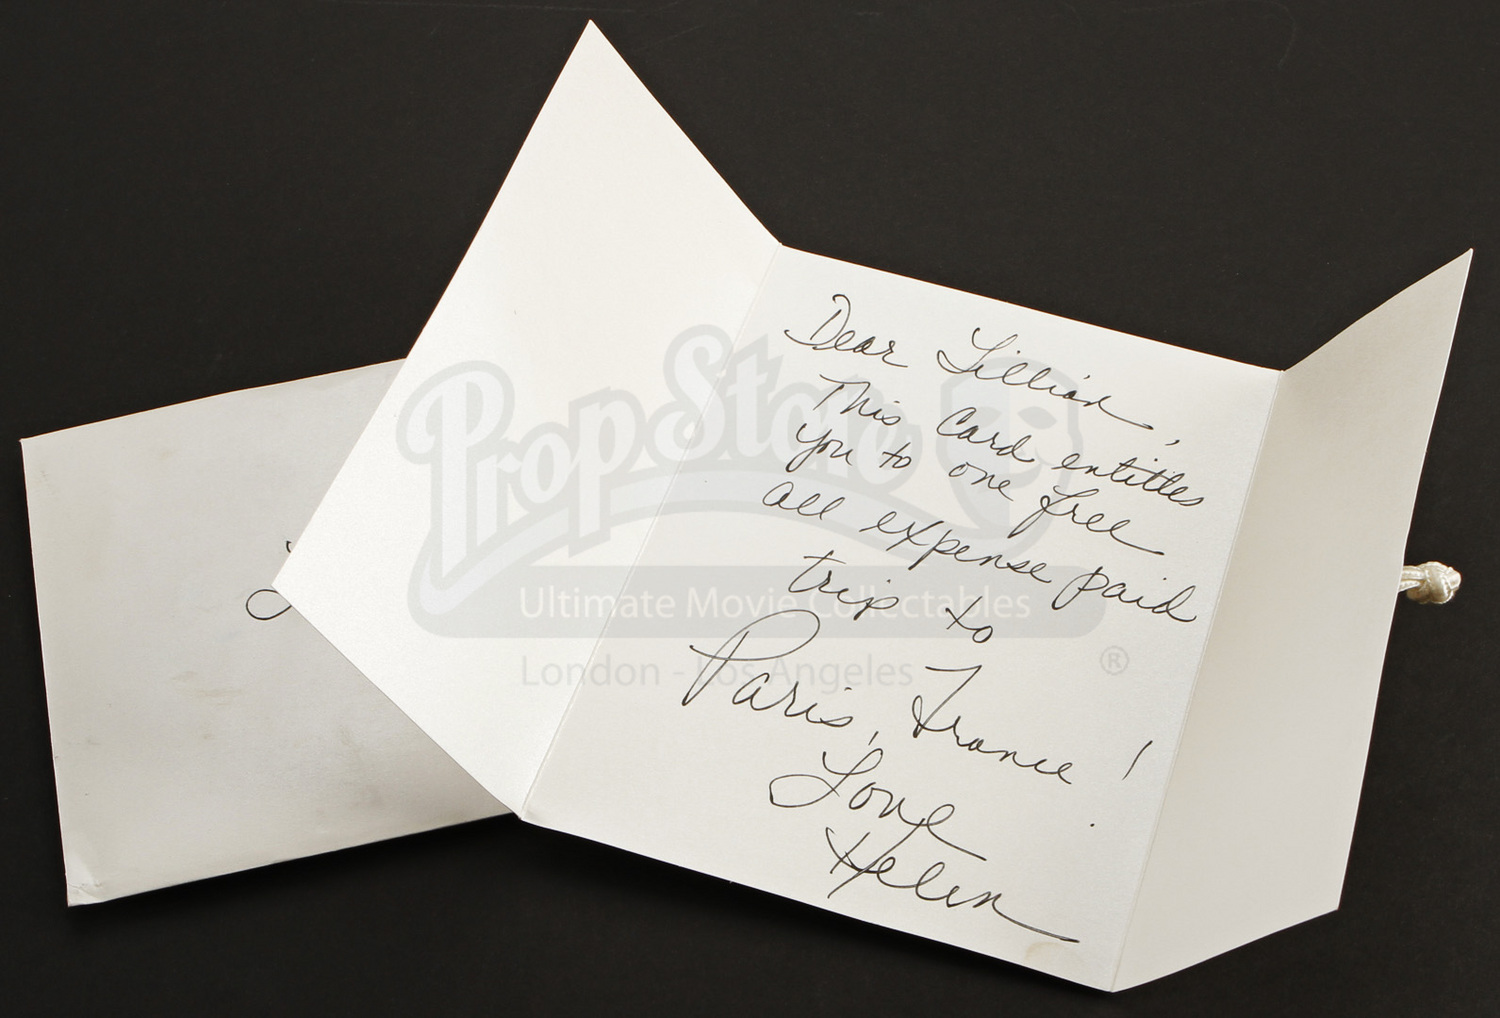 Dear Lillian,
This Card entitles
you to one free
all expense paid
trip to
Paris, France!
Love
Helen
PropStore
Ultimate Movie Collectables
London - Los Angeles
®